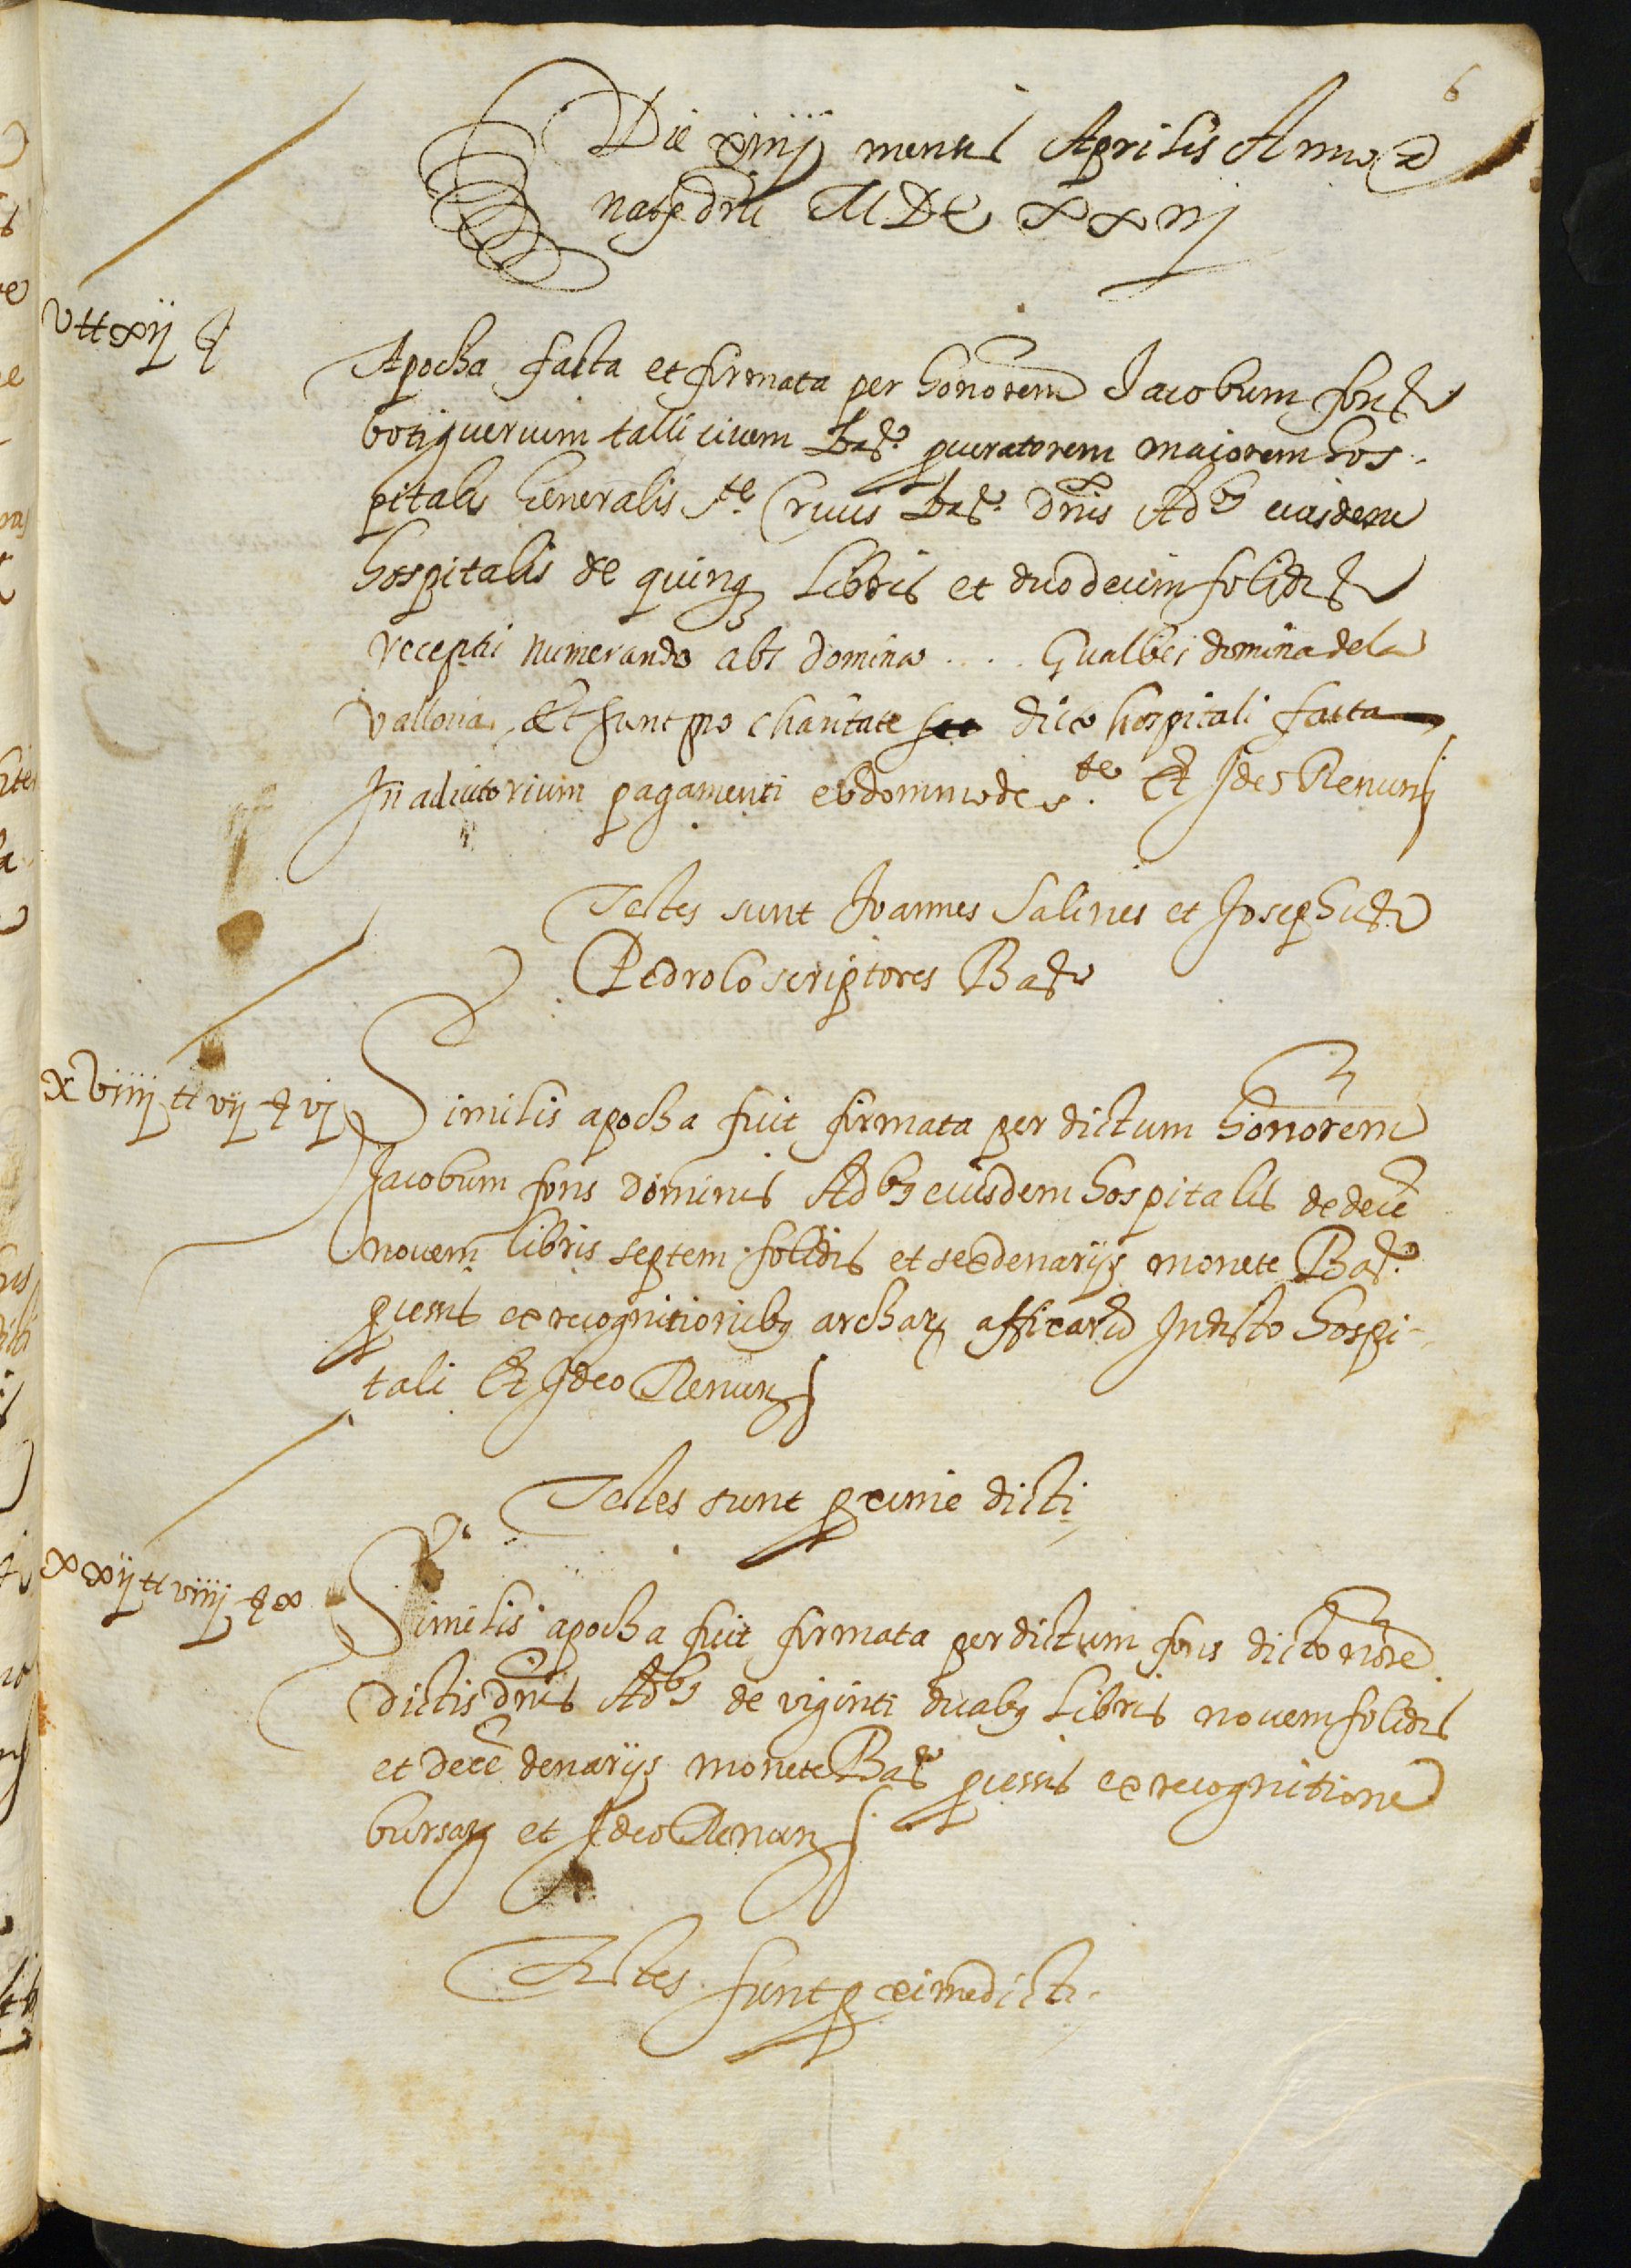 6
Die xiiij mensis Aprilis Anno a
nate dni MDC xxiij
V tt xij ſ
Apocha facta et firmata per honorem Jacobum fons
botiguerium talli civem Bar̃. procuratorem maiorem hos-
pitalis Generalis Ste Crucis Bar̃. dnis Adbus eiusdem
hospitalis de quinq libris et duodecim solidis
receptis numerando abs domina .... Gualbes domina dela
valloria Et sunt pro charitate dicto hospitali facta
In adiutorium pagamenti ebdommode. Et Ideo Renun
Testes sunt Joannes Salines et Josephus
Pedrolo scriptores Bar̃
xviiij tt vij ſ vj
Similis apocha fuit firmata per dictum honorem
Jacobum fons dominis Adbus eiusdem hospitalis de decẽ
novem libris septem solidis et sex denarijs monete Bar̃.
processis ex recognitionibq archarum affixarũ In dicto hospi-
tali Et Ideo Renun
Testes sunt proxime dicti
xxij tt viiij ſ x
Similis apocha fuit firmata per dictum fons dicto noĩe
dictis dnis Adbus de viginti duabq libris novem solidis
et decẽ denarijs monete Bar̃ processis ex recognitione
bursarum et Ideo Renun
Testes sunt proxime dicti.